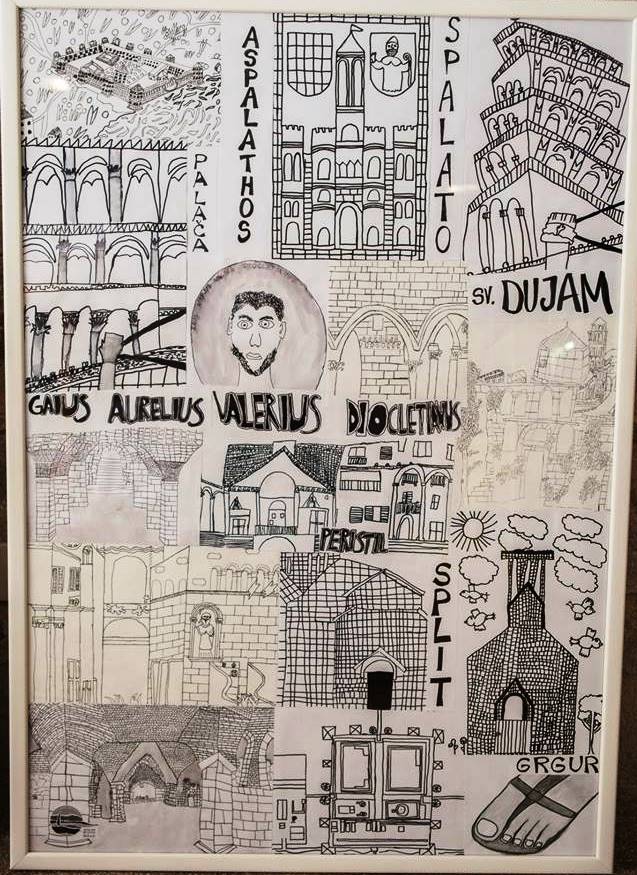 ASPALATHOS
SPALATO
PALAČA
SV. DUJAM
GAIUS AURELIUS VALERIUS DIOCLETIANUS
PERISTIL
SPLIT
GRGUR